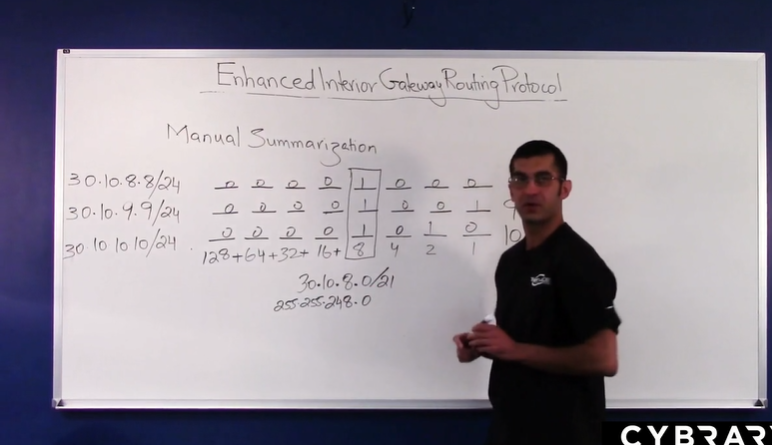 Enhanced Interior Gateway Routing Protocol
Manual Summarization
30.10.8.8/24 0 0 0 0 1 0 0 0
30.10.9.9/24 0 0 0 0 1 0 0 1 9
30.10.10.10/24 0 0 0 0 1 0 1 0 10
128+64+32+16+8 4 2 1
30.10.8.0/21
255.255.248.0
CYBRARY